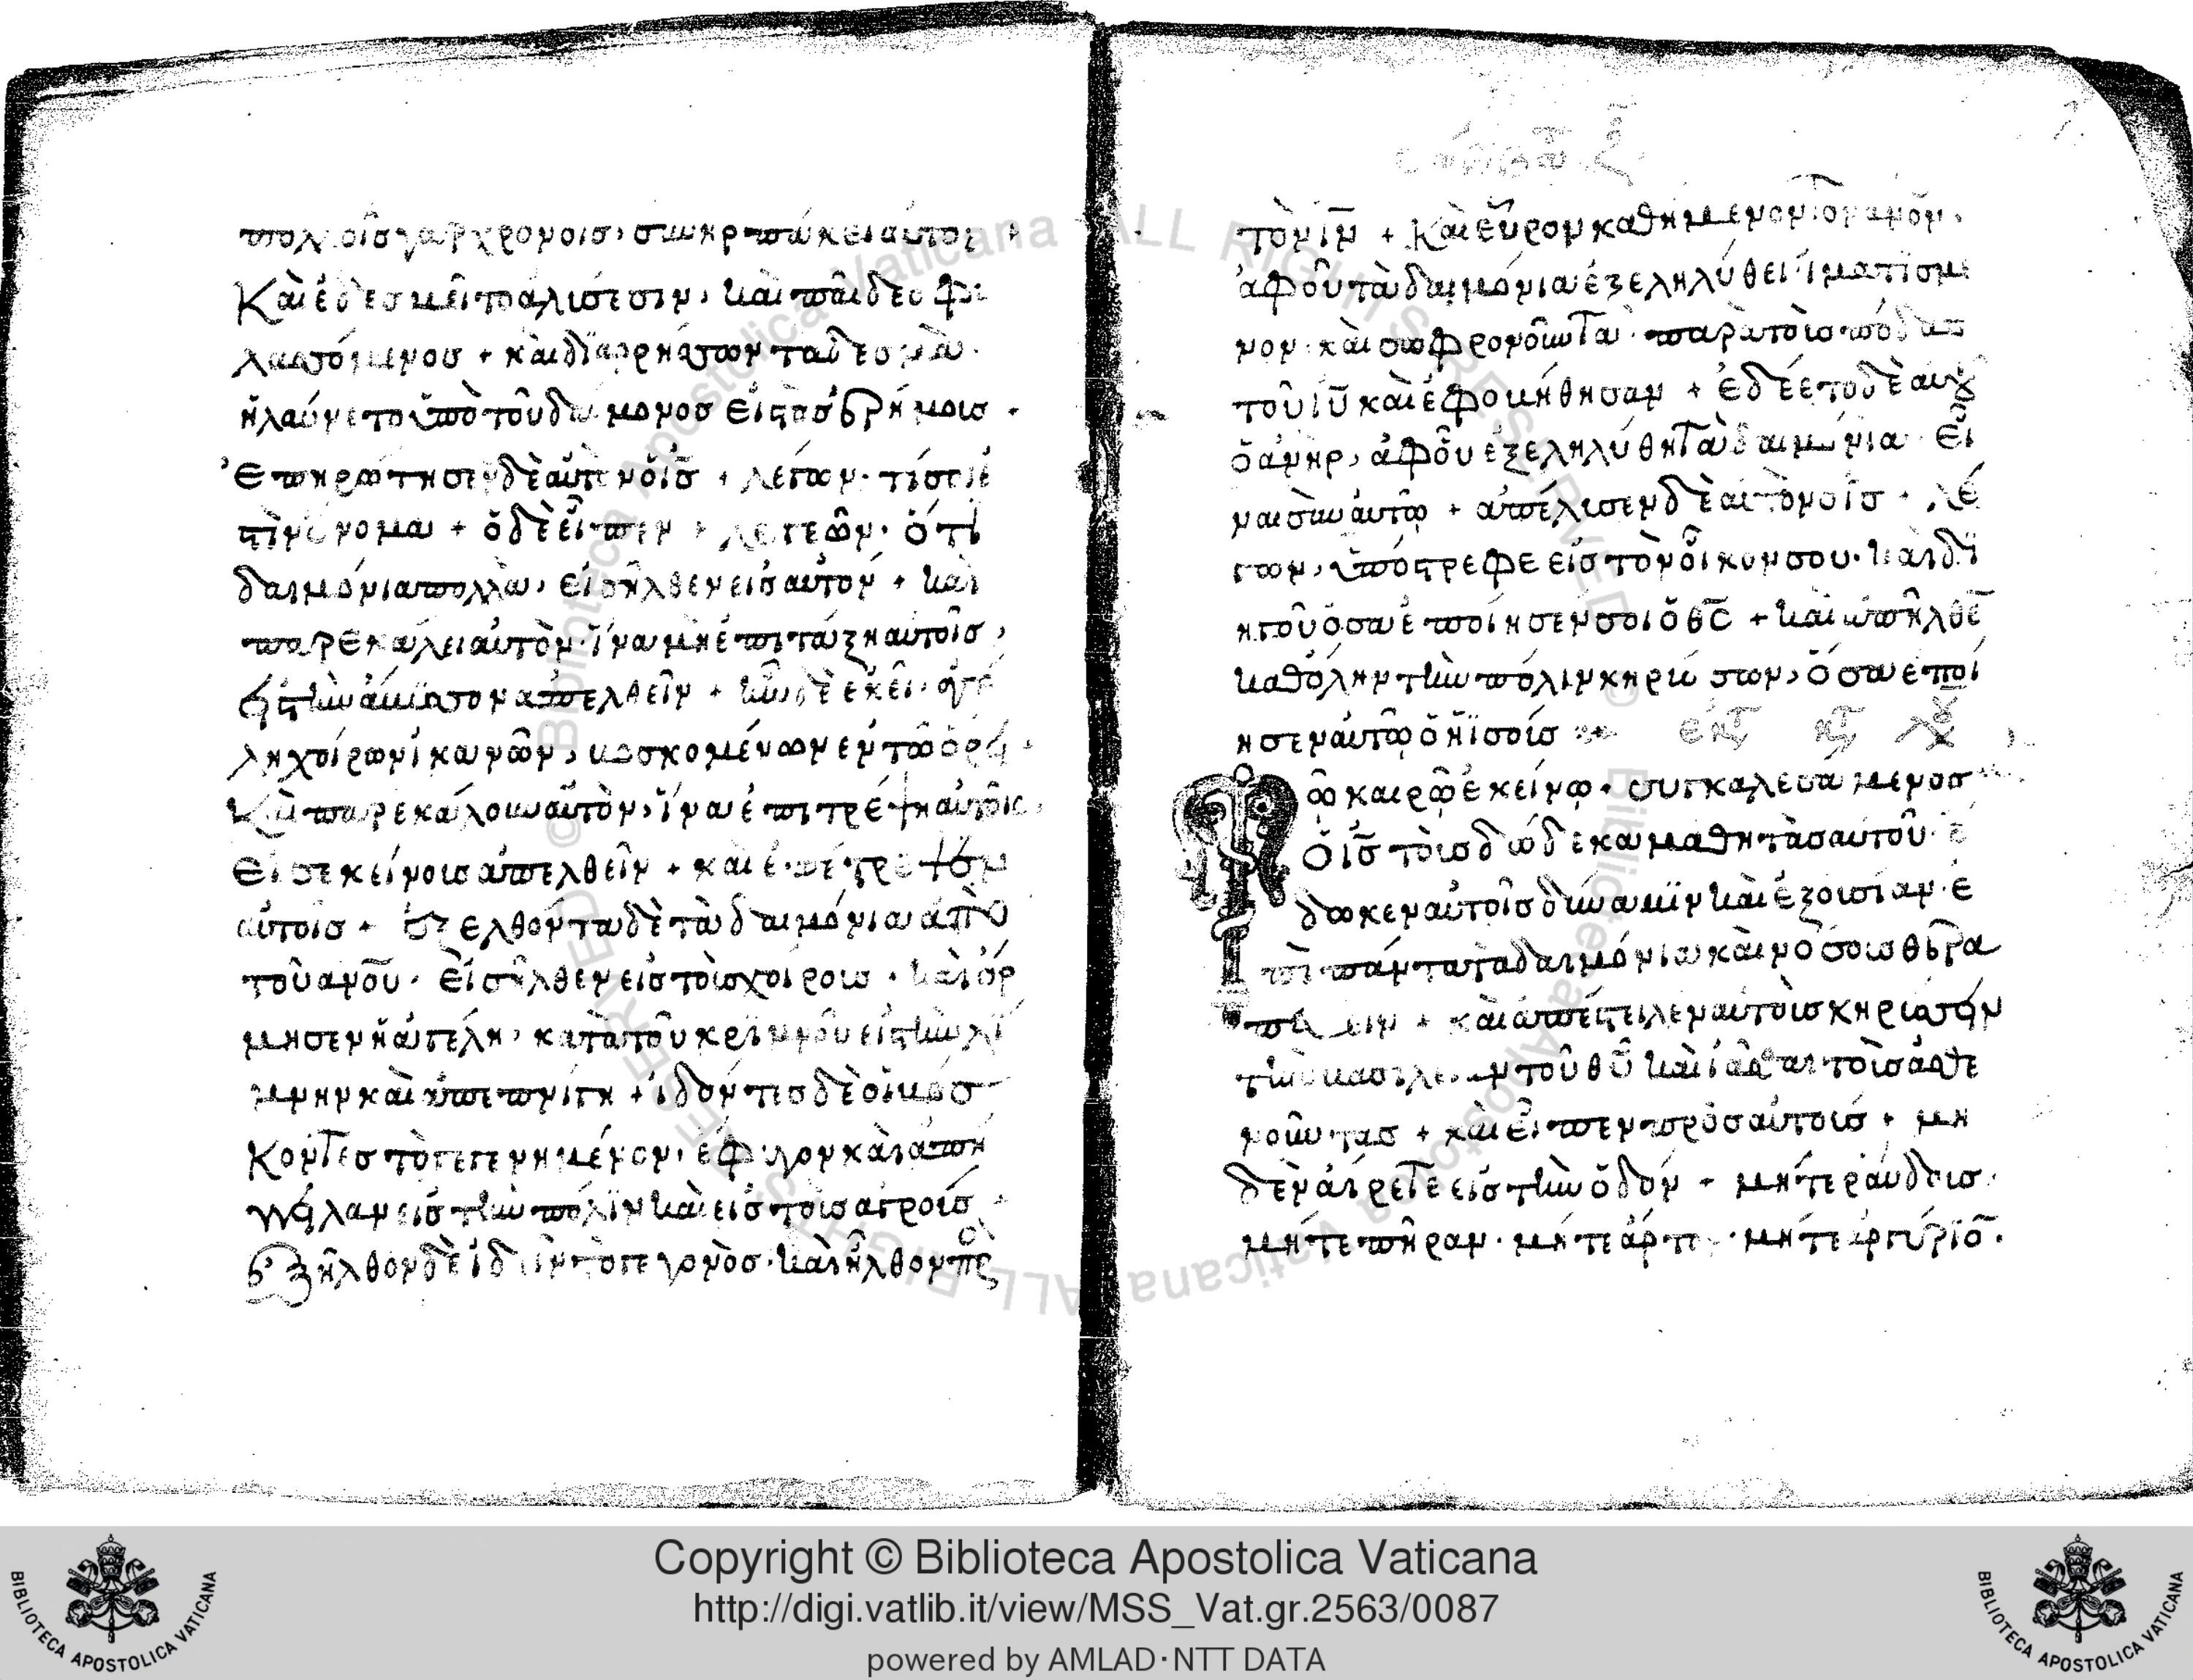 πολοῖσ γὰρ χρονοισ, συνηρπάκει αυτον +
Κὰι ἐδεσμεῖτο αλισέσιν, και παιδεσ φυ
λασσόμενοσ + κὰι διαρρήσσων τα δεσμὰ.
ἠλαύνετο ὑπὸ τοῦ δαιμονοσ εἰσ τασ ἐρήμοισ.
Ἐπηρώτησεν δὲ αὐτὸν ὁ ΙΣ + λέγων. τί σοι ἐ
στὶν ὄνομα + ὁ δὲ εἶπεν + λεγεῶν. ὅτι
δαιμόνια πολλὰ, εἰσῆλθεν εἰσ αυτον + και
παρεκάλει αυτὸν. ἵνα μὴ ἐπιτάξη αυτοῖσ,
εἰσ τὴν ἄβυσσον απελθεῖν + ἦν δὲ ἐκεῖ. ἀγέ
λη χοίρων ἱκανῶν, βοσκομένων εν τῶ ὄρει.
Κὰι παρεκάλουν αὐτὸν, ἵνα ἐπιτρέψη αυτοῖσ.
Εἰσ εκείνοισ απελθεῖν + και ἐπέτρεψεν
αὐτοῖσ + Εξελθοντα δὲ τὰ δαιμόνια ἀπὸ
τοῦ ανοῦ. Εἰσῆλθεν εἰσ τοὶσ χοίροισ. κὰι ὅρ
μησεν ἡ ἀγέλη, κατὰ τοῦ κριμνοῦ εἰσ τὴν λί
μνην κὰι ἀπεπνίγη + ἰδόντισ δὲ οἱ βόσ
Κοντεσ τὸ γεγενημένον. ἔφυγον κὰι ἀπή
γγειλαν εἰσ τὴν πόλιν και εἰσ τοὶσ αγροίσ
ἐξῆλθον δὲ ἰδεῖν τὸ γεγονὸσ. κὰι ἦλθον πρὸσ
τὸν ΙΝ + Κὰι εὗρον καθήμενον τον ανον.
ἀφ οὗ τὰ δαιμόνια ἐξεληλύθει ἱματισμέ
νον κὰι σωφρονοῦντα. παρὰ τοὶσ πόδασ
τοῦ ΙΥ κὰι ἐφοβήθησαν + ἐδέετο δὲ αυτοῦ
ὁ ἀνὴρ, ἀφ οὗ εξεληλύθη τὰ δαιμόνια. Εἶ
ναι σὺν αυτῶ + ἀπέλισεν δὲ αυτὸν ὁ ΙΣ + λέ
γων, ὑπόστρεφε εἰσ τὸν οἶκον σου. κὰι δι
ηγοῦ ὅσα ἐποίησεν σοι ὁ ΘΣ + κὰι ἀπῆλθε
καθόλην τὴν πόλιν κηρύσσων, ὅσα ἐποί
ησεν αυτῶ ὁ ΙΣ
ῶ καιρῶ ἐκείνω. συγκαλεσάμενοσ
ὁ ΙΣ τοὶσ δώδεκα μαθητὰσ αυτοῦ. ἔ
δωκεν αὐτοῖσ δύναμϊν και ἐξοισίαν. ἐ
πὶ πάντα τα δαιμόνια κὰι νόσοισ θερα
πευειν + κὰι ἀπέστειλεν αυτοὶσ κηρύσσειν
τὴν βασιλείαν τοῦ ΘΥ κὰι ἰᾶσθαι τοὶσ ἀσθε
νοῦντασ + κὰι εἶπεν πρὸσ αὐτοισ + μη
δὲν ἄιρετε εἰσ τὴν ὅδον + μήτε ράυδοισ.
μήτε πήραν. μήτε ἄρτον. μήτε ἀργύριο.
Copyright © Biblioteca Apostolica Vaticana
http://digi.vatlib.it/view/MSS_Vat.gr.2563/0087
powered by AMLAD·NTT DATA
BIBLIOTECA APOSTOLICA VATICANA
BIBLIOTECA APOSTOLICA VATICANA